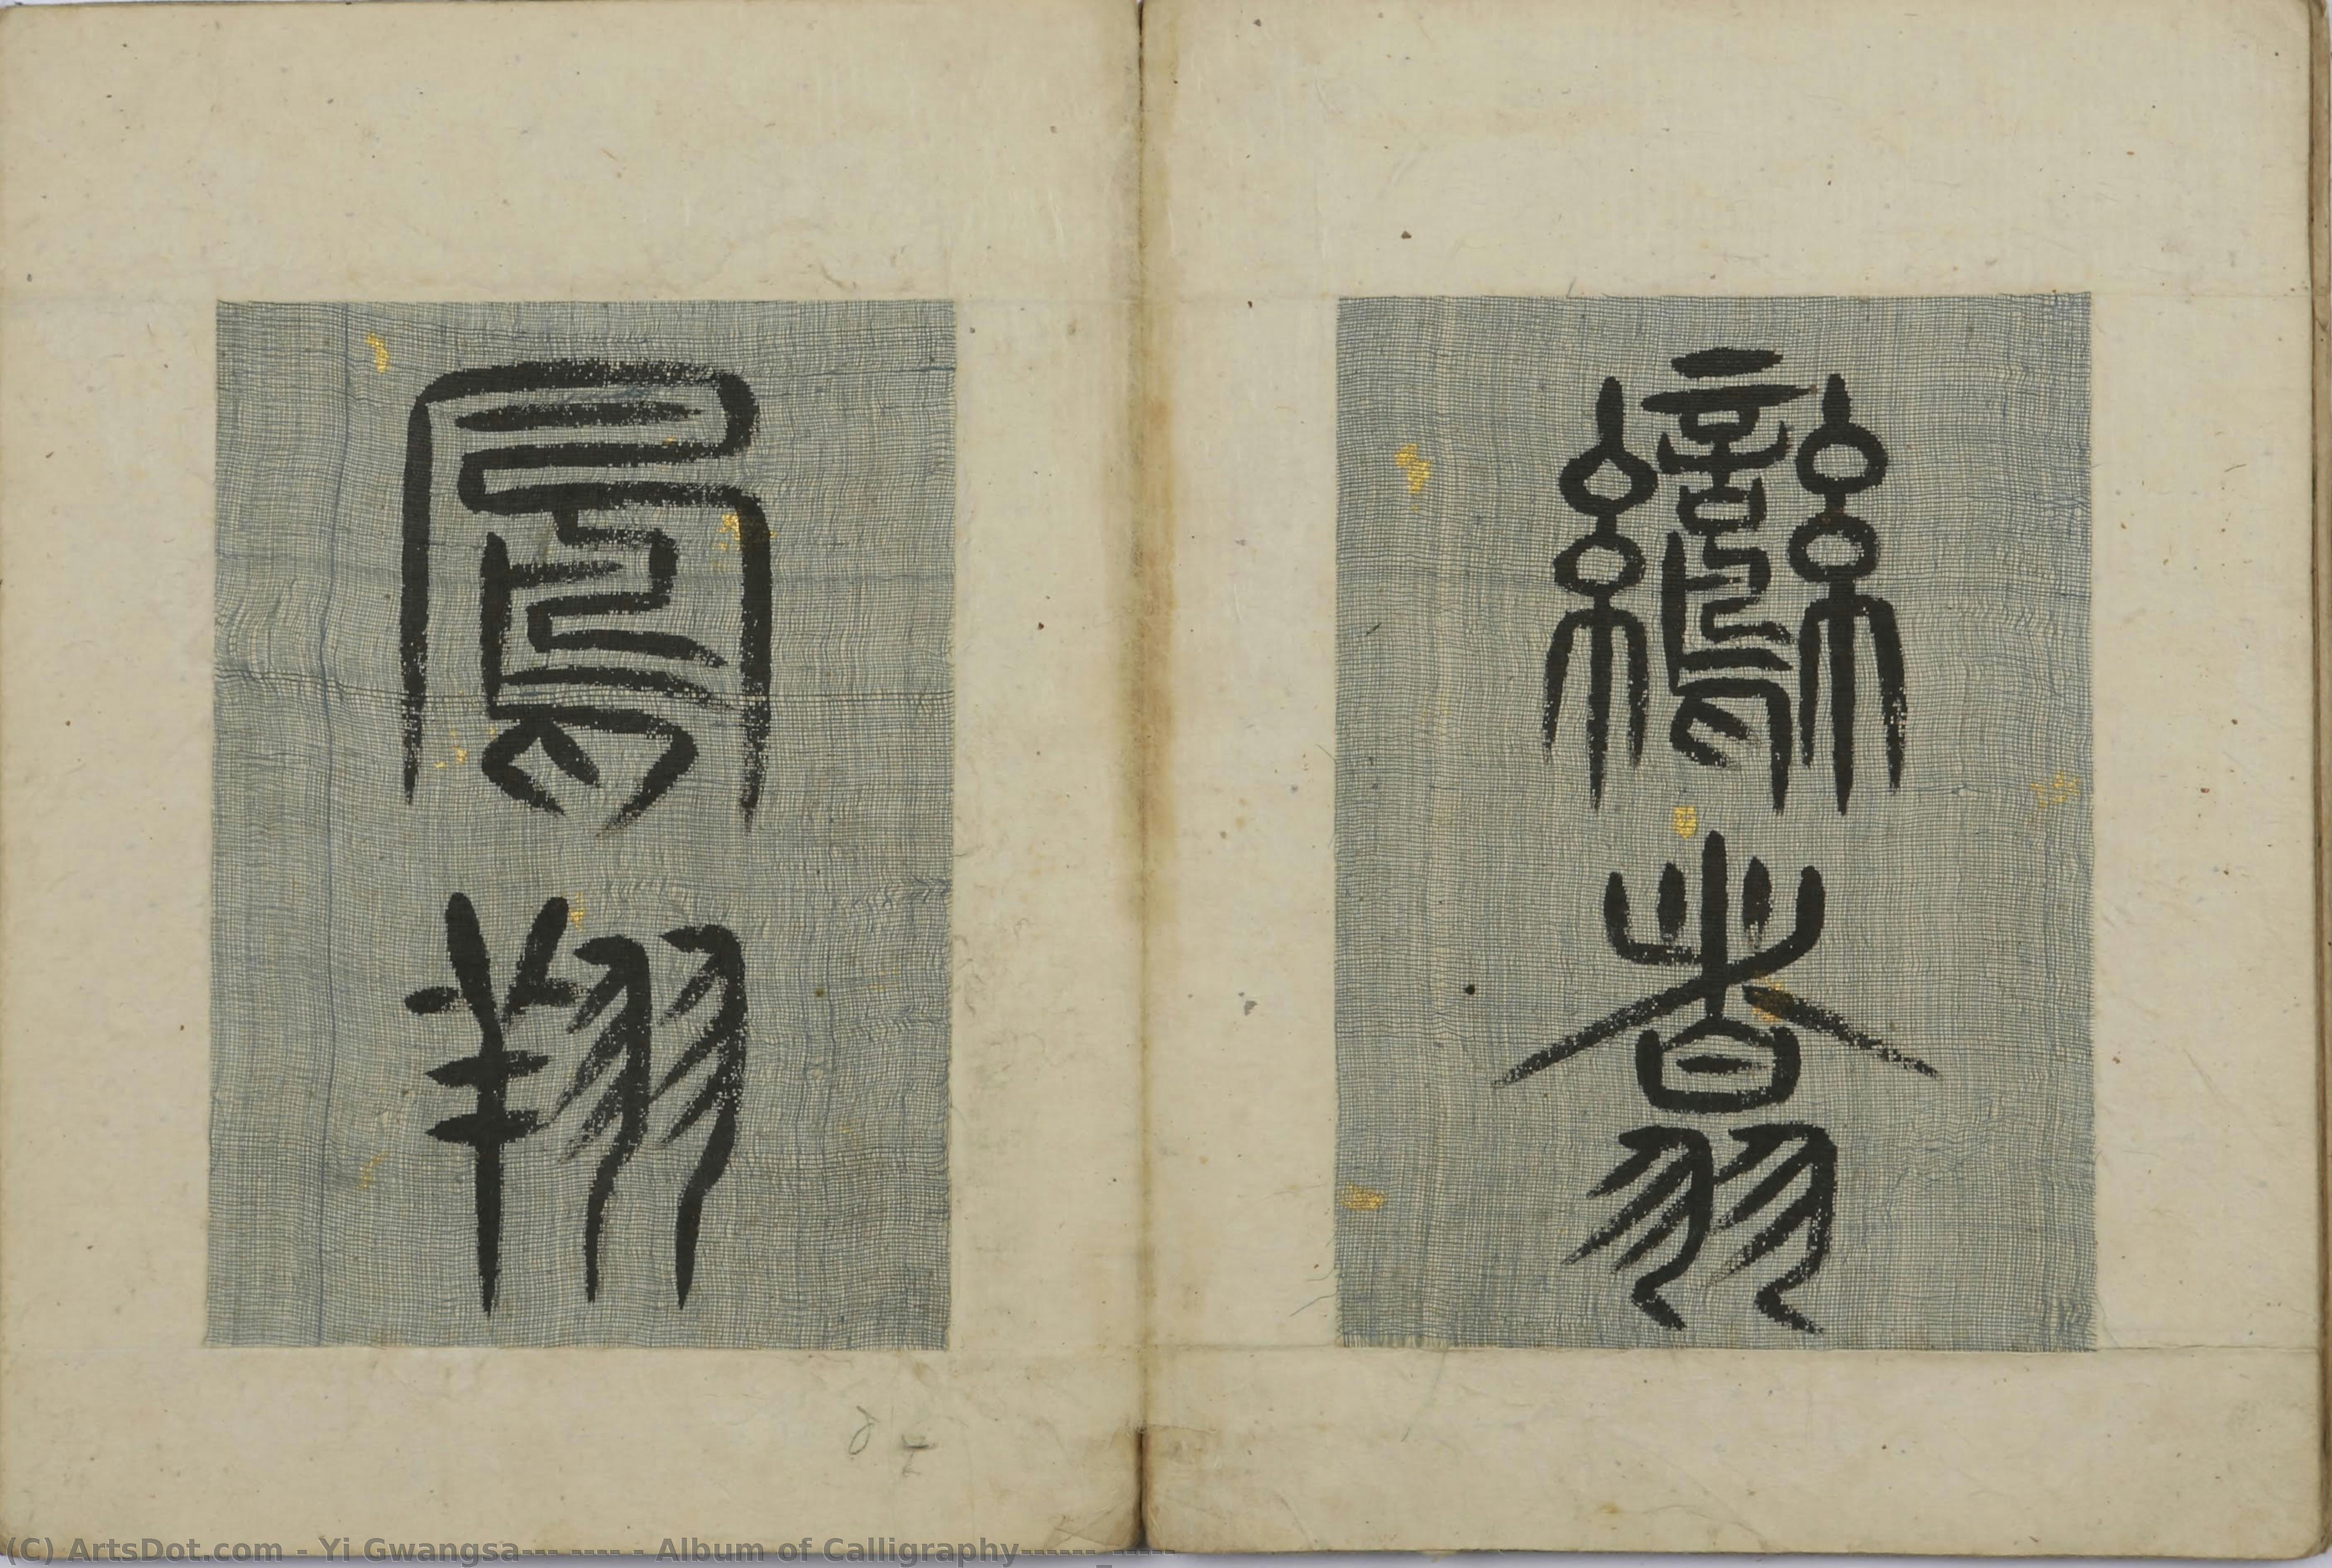 鸞翥
鳳翔
(C) ArtsDot.com - Yi Gwangsa--- ---- - Album of Calligraphy------_-----